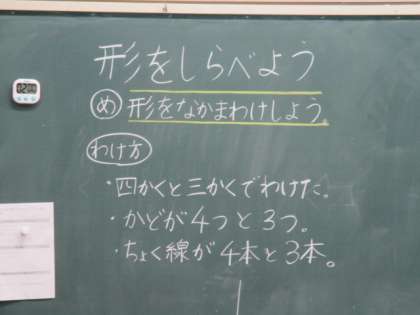 形をしらべよう
め 形をなかまわけしよう。
わけ方
・四かくと三かくでわけた。
・かどが4つと3つ。
・ちょく線が4本と3本。